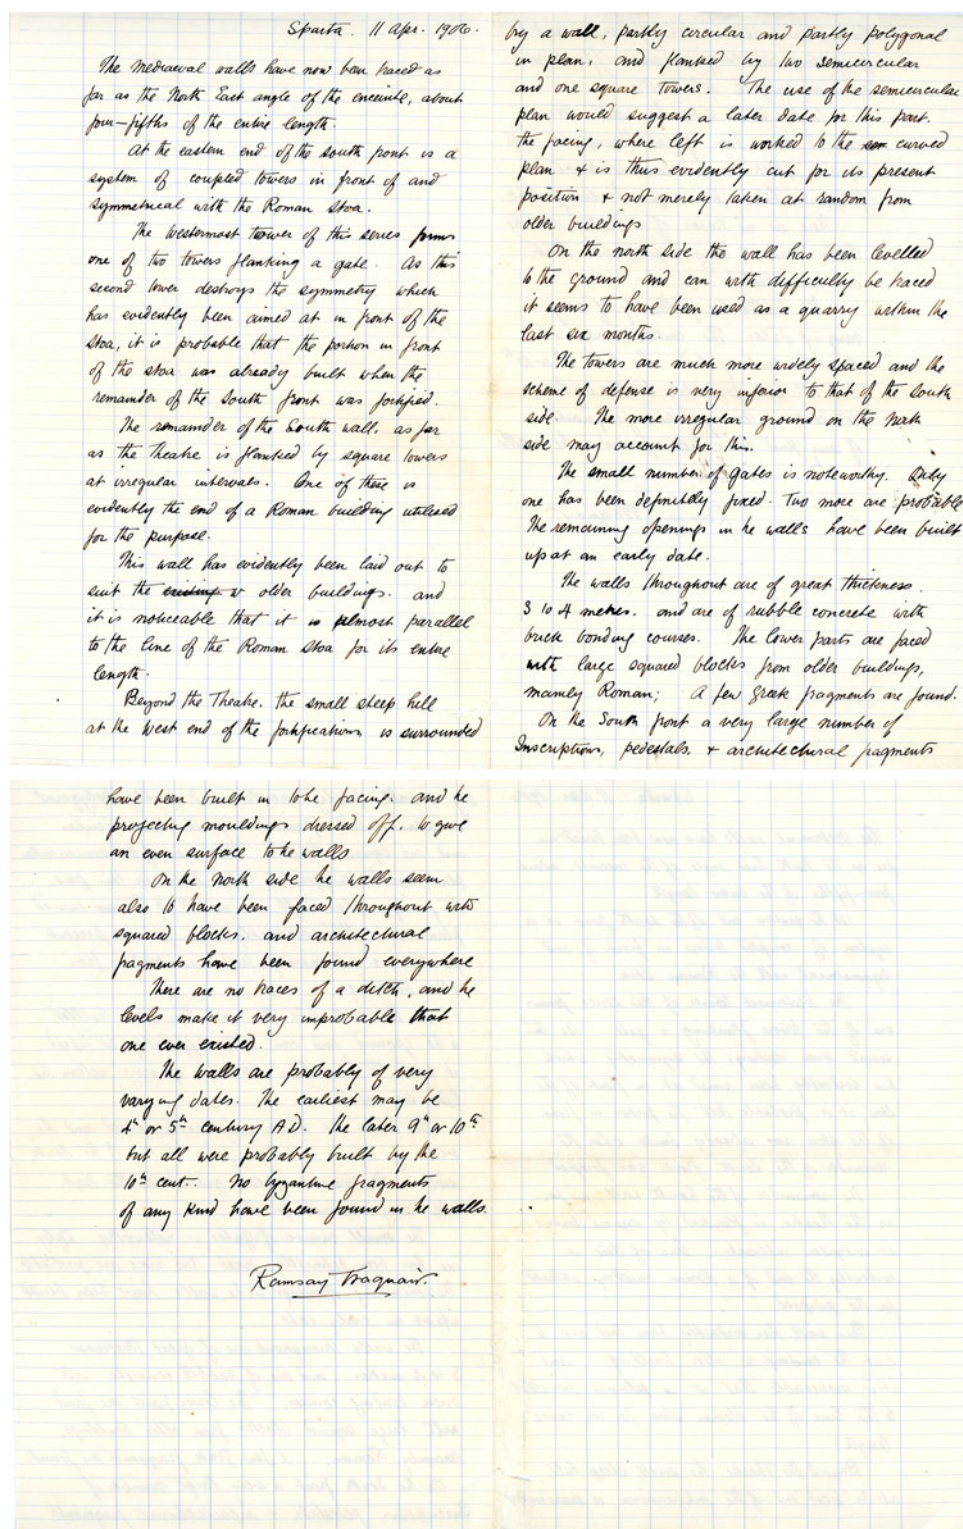 Sparta. 11 Apr. 1906.
The mediaeval walls have now been traced as
far as the North East angle of the enceinte, about
four-fifths of the entire length.
At the eastern end of the south front is a
system of coupled towers in front of and
symmetrical with the Roman Stoa.
The Westermost tower of this series forms
one of two towers flanking a gate. As this
second tower destroys the symmetry which
has evidently been aimed at in front of the
Stoa, it is probable that the portion in front
of the stoa was already built when the
remainder of the South front was fortified.
The remainder of the South wall, as far
as the Theatre is flanked by square towers
at irregular intervals. One of these is
evidently the end of a Roman building utilised
for the purpose.
This wall has evidently been laid out to
suit the existing older buildings. and
it is noticeable that it is almost parallel
to the line of the Roman Stoa for its entire
length.
Beyond the Theatre. the small steep hill
at the West end of the fortifications is surrounded
by a wall, partly circular and partly polygonal
in plan, and flanked by two semicircular
and one square towers. The use of the semicircular
plan would suggest a later date for this part.
the facing, where left is worked to the curved
plan & is thus evidently cut for its present
position & not merely taken at random from
older buildings
On the north side the wall has been levelled
to the ground and can with difficulty be traced
it seems to have been used as a quarry within the
last six months.
The towers are much more widely spaced and the
scheme of defense is very inferior to that of the South
side. The more irregular ground on the North
side may account for this.
The small number of gates is noteworthy. Only
one has been definitely fixed. Two more are probable
The remaining openings in he walls have been built
up at an early date.
The walls throughout are of great thickness
3 to 4 metres. and are of rubble concrete with
brick bonding courses. The lower parts are faced
with large squared blocks from older buildings,
mainly Roman; A few Greek fragments are found.
On the South front a very large number of
Inscriptions, pedestals, & architectural fragments
have been built in to he facing. and he
projecting mouldings dressed off. to give
an even surface to he walls
On the North side he walls seem
also to have been faced throughout with
squared blocks. and architectural
fragments have been found everywhere
There are no traces of a ditch, and he
levels make it very improbable that
one ever existed.
The walls are probably of very
varying dates. The earliest may be
4th or 5th century A.D. the later 9th or 10th
but all were probably built by the
10th cent.. No byzantine fragments
of any kind have been found in he walls.
Ramsay Traquair.